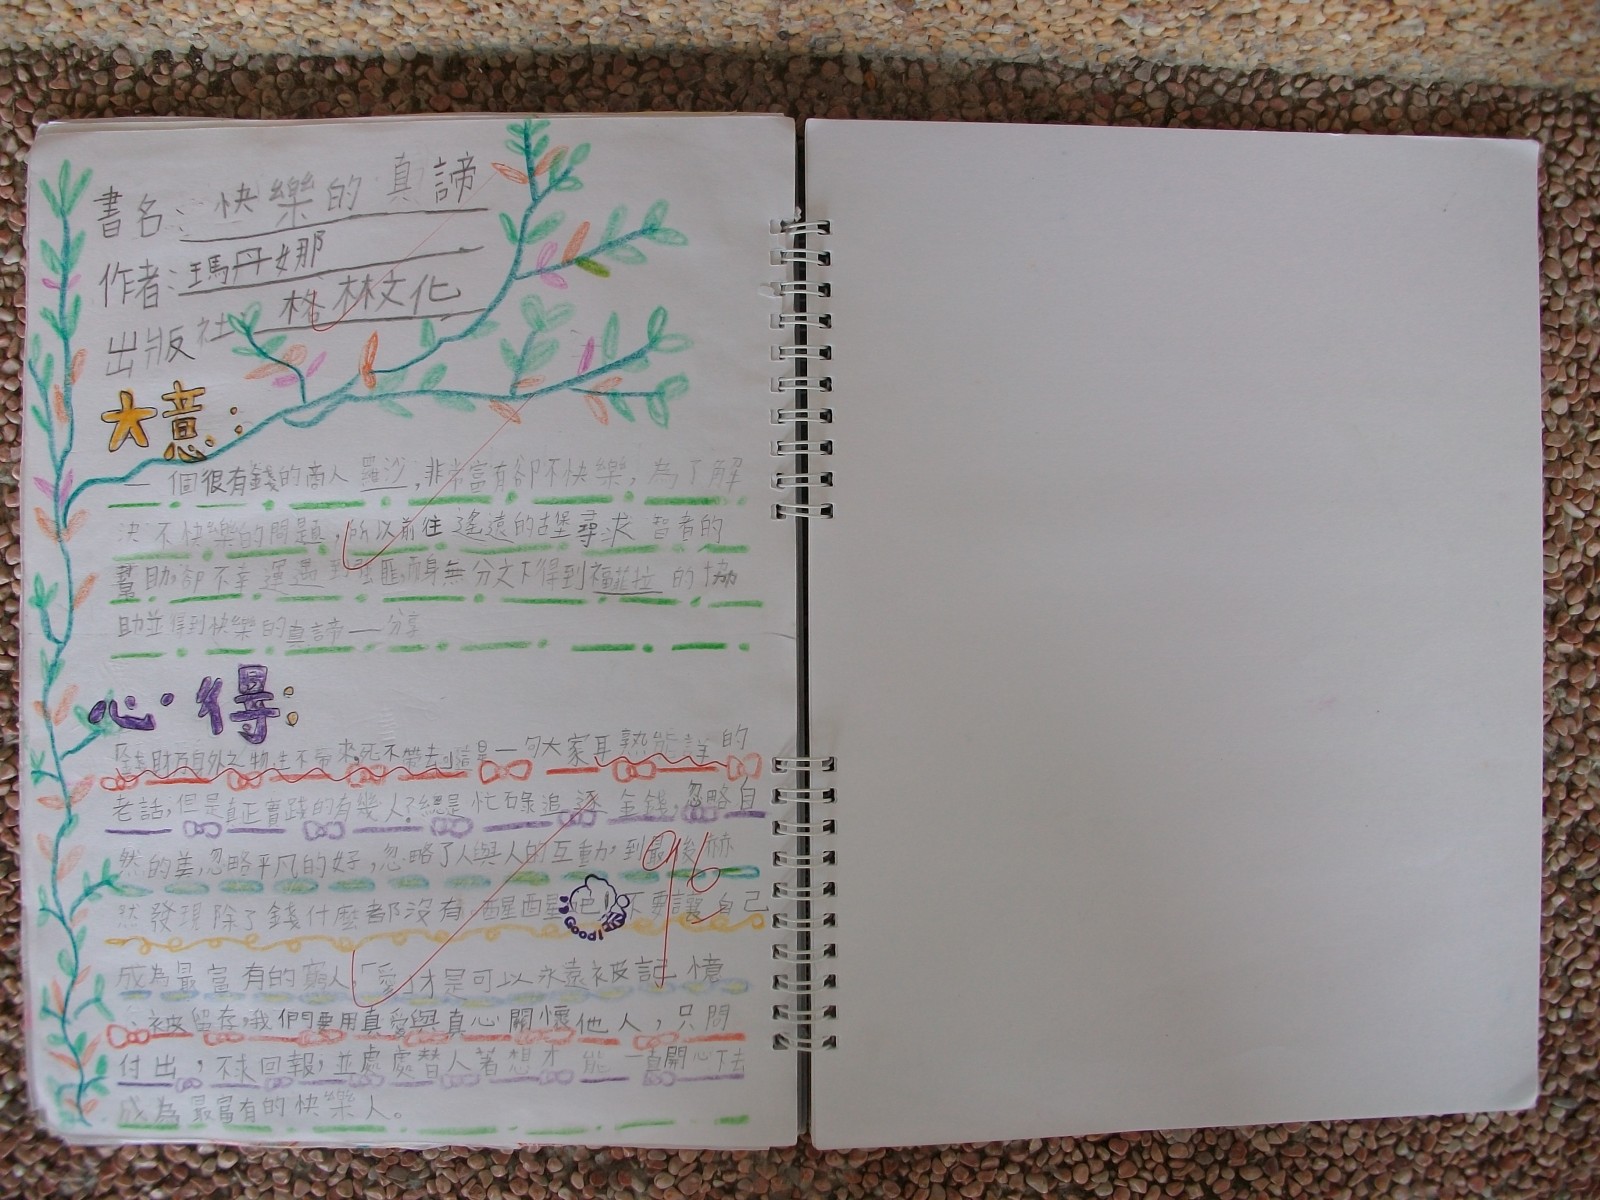 書名：快樂的真諦
作者：瑪丹娜
出版社：格林文化
大意：
一個很有錢的商人羅沙，非常富有卻不快樂，為了解
決不快樂的問題，所以前往遙遠的古堡尋求智者的
幫助，卻不幸運遇到強匪，而身無分文下得到福菲拉的協
助並得到快樂的真諦──分享
心得：
「錢財乃身外之物生不帶來，死不帶去」這是一句大家耳熟能詳的
老話，但是真正實踐的有幾人？總是忙碌追逐金錢，忽略自
然的美，忽略平凡的好，忽略了人與人的互動，到最後赫
然發現除了錢什麼都沒有，醒醒吧！不要讓自己
成為最富有的窮人，「愛」才是可以永遠被記憶
、被留存，我們要用真愛與真心關懷他人，只問
付出，不求回報，並處處替人著想才能一直開心下去
成為最富有的快樂人。
96
Good!